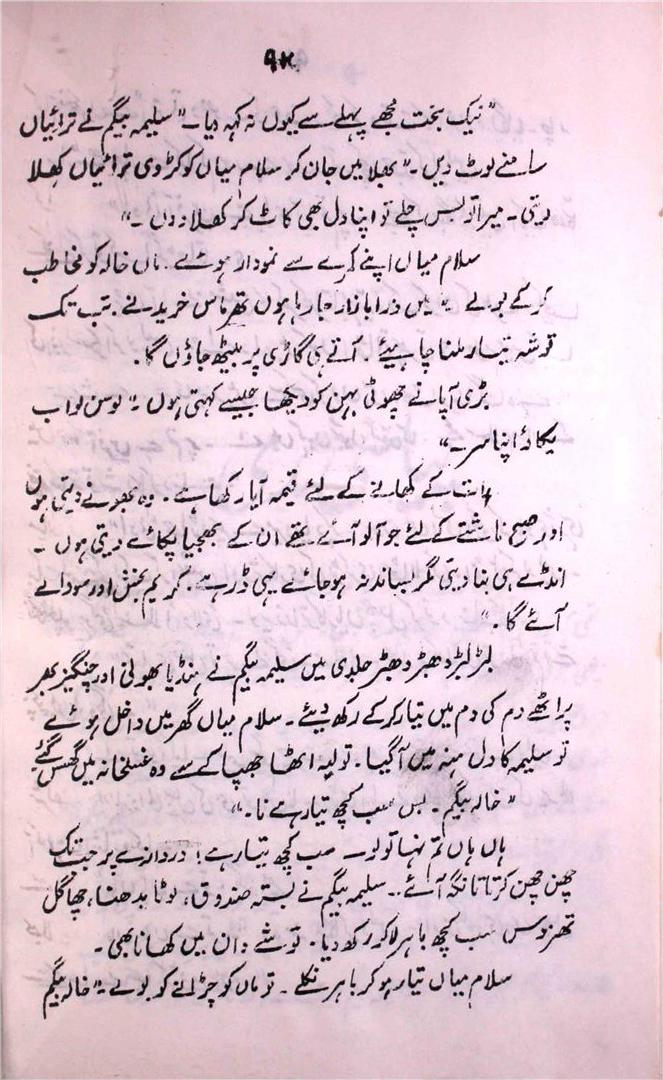 ۹۴
"نیک بخت مجھے پہلے سے کیوں نہ کہہ دیا۔" سلیمہ بیگم نے ترائیاں
سامنے لوٹ دیں۔ "بھلا میں جان کر سلام میاں کو کڑوی ترائیاں کھلا
دیتی۔ میرا تو بس چلے تو اپنا دل بھی کاٹ کر کھلا دوں۔"
سلام میاں اپنے کمرے سے نمودار ہوئے۔ ماں خالہ کو مخاطب
کر کے بولے "میں ذرا بازار جا رہا ہوں تھرماس خریدنے۔ تب تک
توشہ تیار ملنا چاہیئے۔ آتے ہی گاڑی پر بیٹھ جاؤں گا۔
بڑی آپا نے چھوٹی بہن کو دیکھا جیسے کہتی ہوں۔ "لو سن لو اب
پکاؤ اپنا سر۔"
رات کے کھانے کے لئے قیمہ آیا رکھا ہے۔ وہ بھونے دیتی ہوں
اور صبح ناشتے کے لئے جو آلو آئے تھے ان کے بھجیا پکائے دیتی ہوں۔
انڈے ہی بنا دیتی مگر بساند نہ ہو جائے یہی ڈر ہے۔ کریم بخش اور سودا لے
آئے گا۔"
لپڑ لپڑ دھپڑ دھپڑ جلدی میں سلیمہ بیگم نے ہنڈیا بھونی اور چنگیز بھر
پراٹھے دم کی دم میں تیار کر کے رکھ دیئے۔ سلام میاں گھر میں داخل ہوئے
تو سلیمہ کا دل منہ میں آ گیا۔ تولیہ اٹھا جھپاکے سے وہ غسلخانہ میں گھس گئے
"خالہ بیگم۔ بس سب کچھ تیار ہے نا۔"
ہاں ہاں تم نہا تو لو۔ سب کچھ تیار ہے! دروازے پر جب تک
چھن چھن کرتا تانگہ آئے۔ سلیمہ بیگم نے بستہ صندوق، لوٹا بدھنا، چھاگل
تھرموس سب کچھ باہر لا کر رکھ دیا۔ توشے دان میں کھانا بھی۔
سلام میاں تیار ہو کر باہر نکلے۔ تو ماں کو چڑانے کو بولے۔ "خالہ بیگم